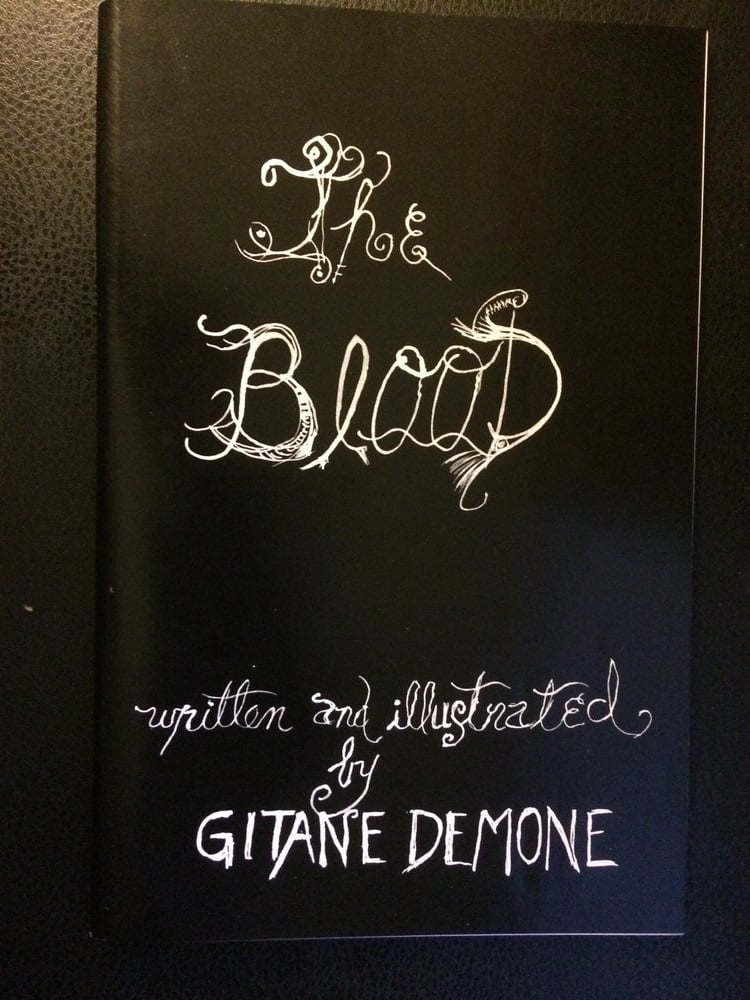 The
Blood
written and illustrated
by
GITANE DEMONE